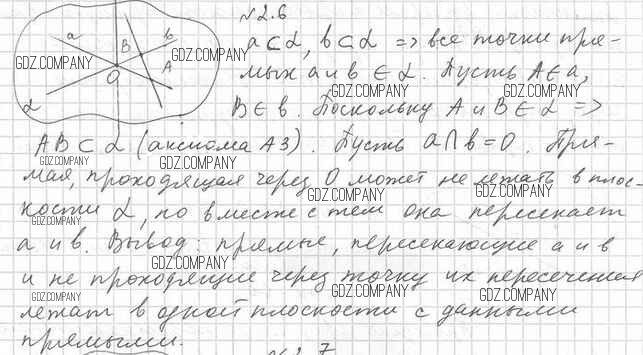 №2.6
a b B A O α
a⊂α, b⊂α => все точки пря-
мых a и b ∈ α. Пусть A∈a,
B∈b. Поскольку A и B∈α =>
AB⊂α (аксиома A3). Пусть a∩b=O. Пря-
мая, проходящая через O может не лежать в плос-
кости α, но вместе с тем она пересекает
a и b. Вывод: прямые, пересекающие a и b
и не проходящие через точку их пересечения
лежат в одной плоскости с данными
прямыми.
№2.7
GDZ.COMPANY
GDZ.COMPANY
GDZ.COMPANY
GDZ.COMPANY
GDZ.COMPANY
GDZ.COMPANY
GDZ.COMPANY
GDZ.COMPANY
GDZ.COMPANY
GDZ.COMPANY
GDZ.COMPANY
GDZ.COMPANY
GDZ.COMPANY
GDZ.COMPANY